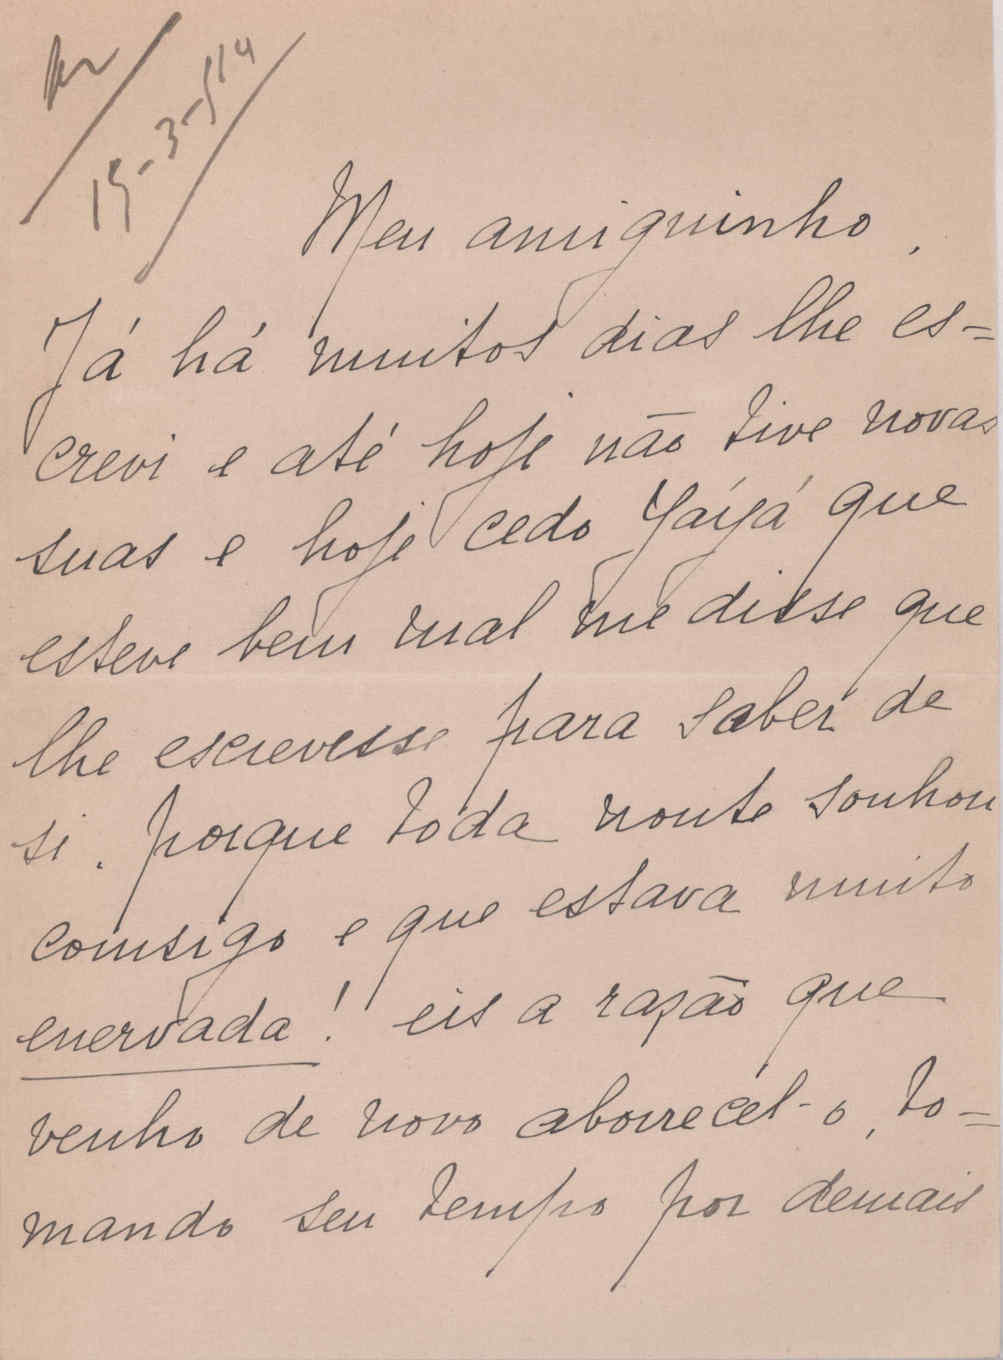 19-3-914
Meu amiguinho,
Já há muitos dias lhe es=
crevi e até hoje não tive novas
suas e hoje cedo Yáyá que
esteve bem mal me disse que
lhe escrevesse para saber de
si. porque toda noute sonhou
comsigo e que estava muito
enervada! eis a razão que
venho de novo aborrecel-o, to=
mando seu tempo por demais